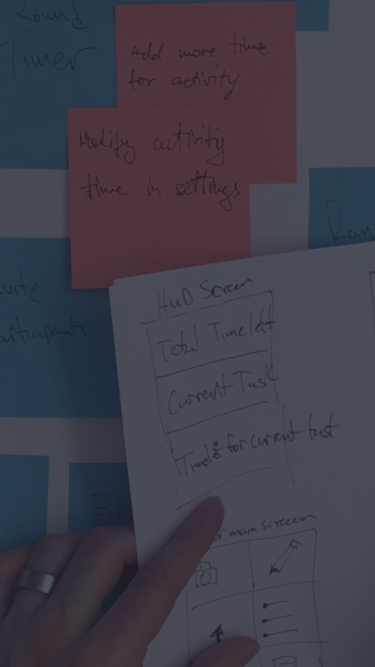 Round
Timer
Add more time
for activity
Modify activity
time in settings
HUD Screen
Total Time left
Current Task
for current task
main screen